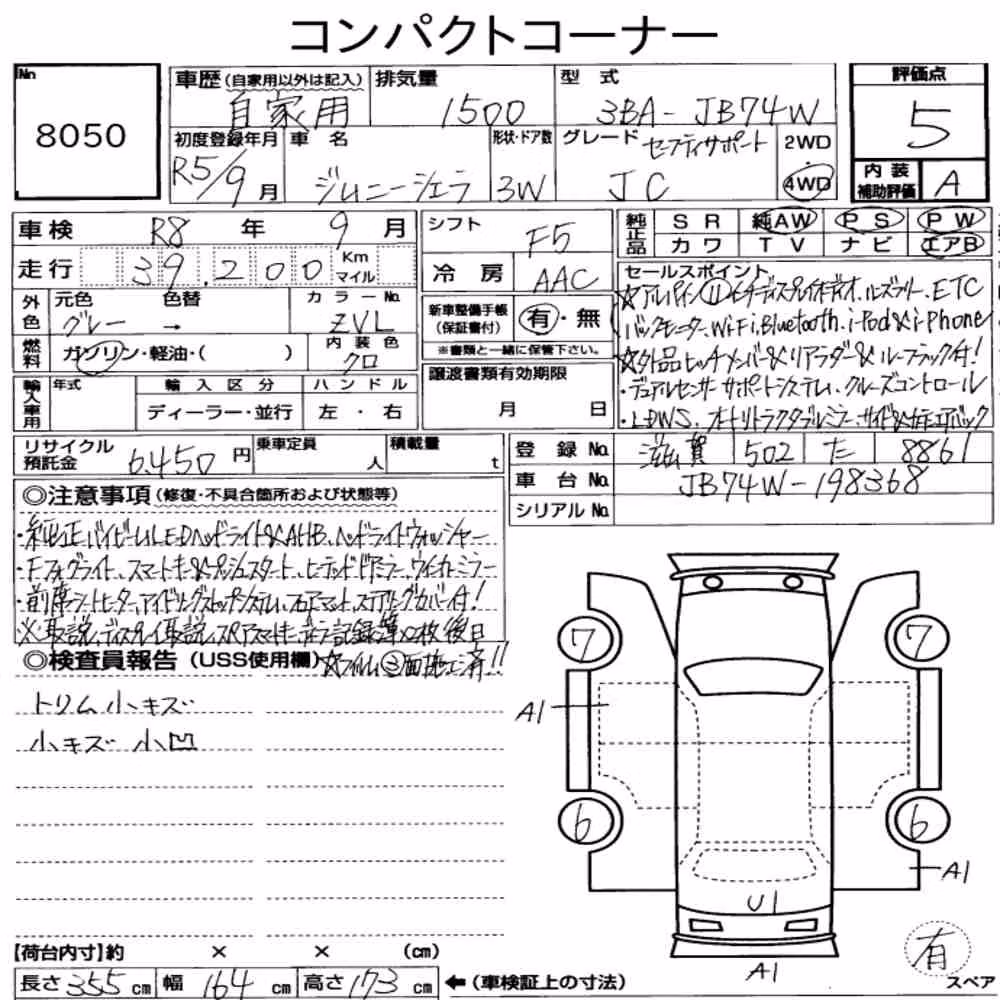 コンパクトコーナー
No
8050
車歴(自家用以外は記入)
自家用
排気量
1500
型 式
3BA-JB74W
評価点
5
初度登録年月
R5/9月
車 名
ジムニーシエラ
形状・ドア数
3W
グレード
セーフティサポート
JC
2WD
4WD
内 装
補助評価
A
車検 R8 年 9 月
走行 39.200 Km
マイル
シフト
F5
冷 房
AAC
純正品
S R 純AW P S P W
カ ワ T V ナ ビ エアB
外色
元色 色替
グレー →
カラーNo.
ZVL
燃料
ガソリン・軽油・( )
内 装 色
クロ
新車整備手帳
(保証書付)
有・無
※書類と一緒に保管下さい。
セールスポイント
☆アルパイン⑪インチディスプレイオーディオ、ルーズフリー、ETC
バックモニター、Wi-Fi、Bluetooth、i-Pod&i-Phone
☆外品ヒッチメンバー&リアラダー&ルーフラック付!
・デュアルセンサーサポートシステム、クルーズコントロール
・LDWS、オートリトラクタブルミラー、サイド&カーテンエアバック
輸入車用
年式
輸 入 区 分
ディーラー・並行
ハ ン ド ル
左 ・ 右
譲渡書類有効期限
月 日
リサイクル
預託金
6.450 円
乗車定員
人
積載量
t
登 録 No. 滋賀 502 た 8861
車 台 No. JB74W-198368
シリアル No.
◎注意事項(修復・不具合箇所および状態等)
・純正バイビームLEDヘッドライト&AHB、ヘッドライトウォッシャー
・Fフォグライト、スマートキー&プッシュスタート、ヒーテッドドアミラー、ウインカーミラー
・前席シートヒーター、アイドリングストップシステム、フロアマット、ステアリングカバー付!
※取説、ディスプレイ取説、スペアスマートキー、ボディ記録簿×2枚 後日
◎検査員報告(USS使用欄)
☆フィルム③面施工済!!
トリム小キズ
小キズ 小凹
7
7
A1
6
6
A1
U1
A1
有
スペア
【荷台内寸】約 × × (cm)
長さ 355 cm 幅 164 cm 高さ 173 cm ←(車検証上の寸法)